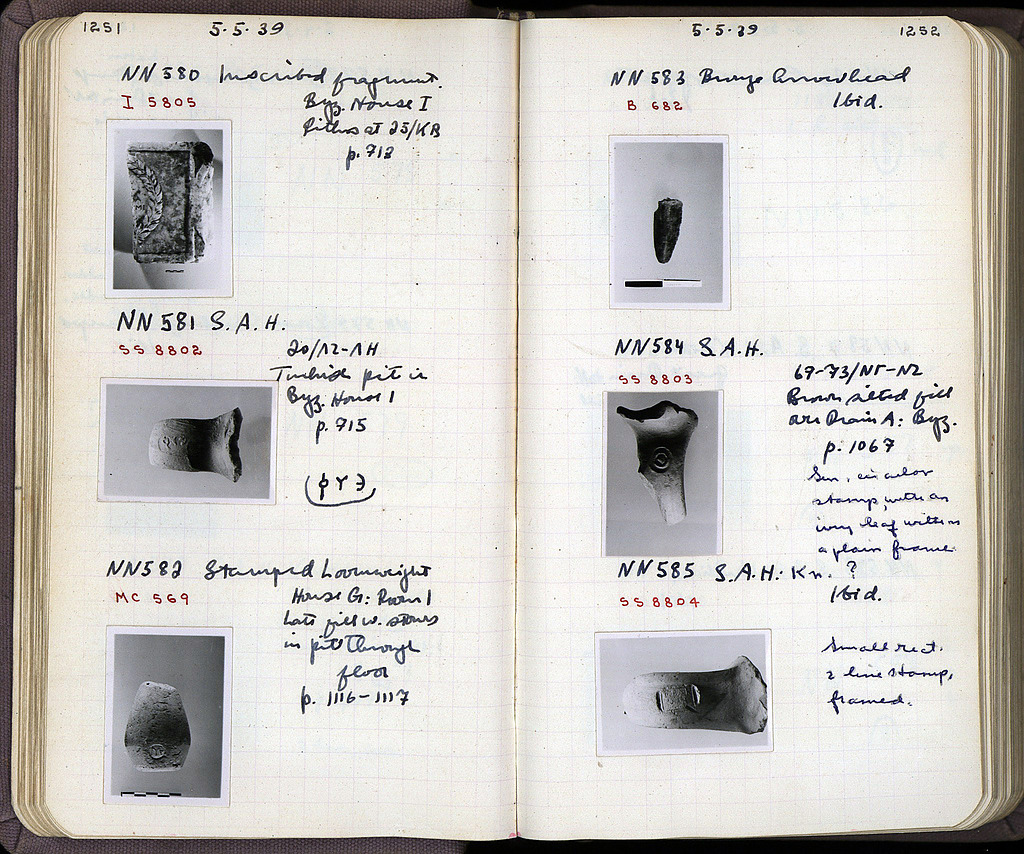 1251
5·5·39
NN 580 Inscribed fragment.
I 5805
Byz. House I
Pithos at 25/KB
p. 712
NN 581 S.A.H.
SS 8802
20/ΛΖ-ΛΗ
Turkish pit in
Byz. House 1
p. 715
NN 582 Stamped Loomweight
MC 569
House G: Room 1
Late fill w. stones
in pit through
floor
p. 1116-1117
1252
5·5·39
NN 583 Bronze Arrowhead
B 682
Ibid.
NN 584 S.A.H.
SS 8803
Brown silted fill
over Drain A: Byz.
p. 1067
Sm. circular
stamp, with an
ivy leaf within
a plain frame.
NN 585 S.A.H: Kn. ?
SS 8804
Ibid.
Small rect.
2 line stamp,
framed.